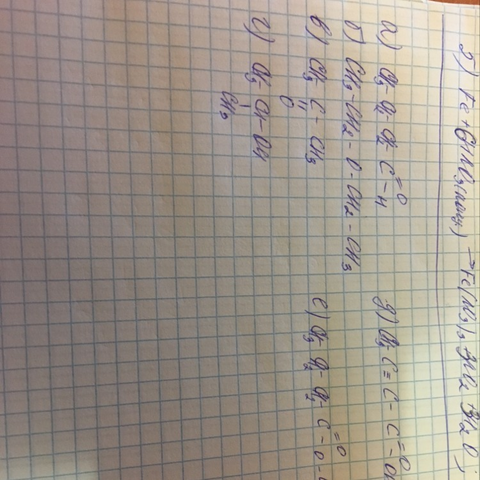 2) Fe + 6HNO3(конц) → Fe(NO3)3 + 3NO2 + 3H2O;
а) CH3-CH2-CH2-C=O-H
б) CH3-CH2-O-CH2-CH3
в) CH3-C-CH3
O
г) CH3-CH-OH
CH3
д) CH3-C≡C-C=O-OH
е) CH3-CH2-CH2-C=O-O-